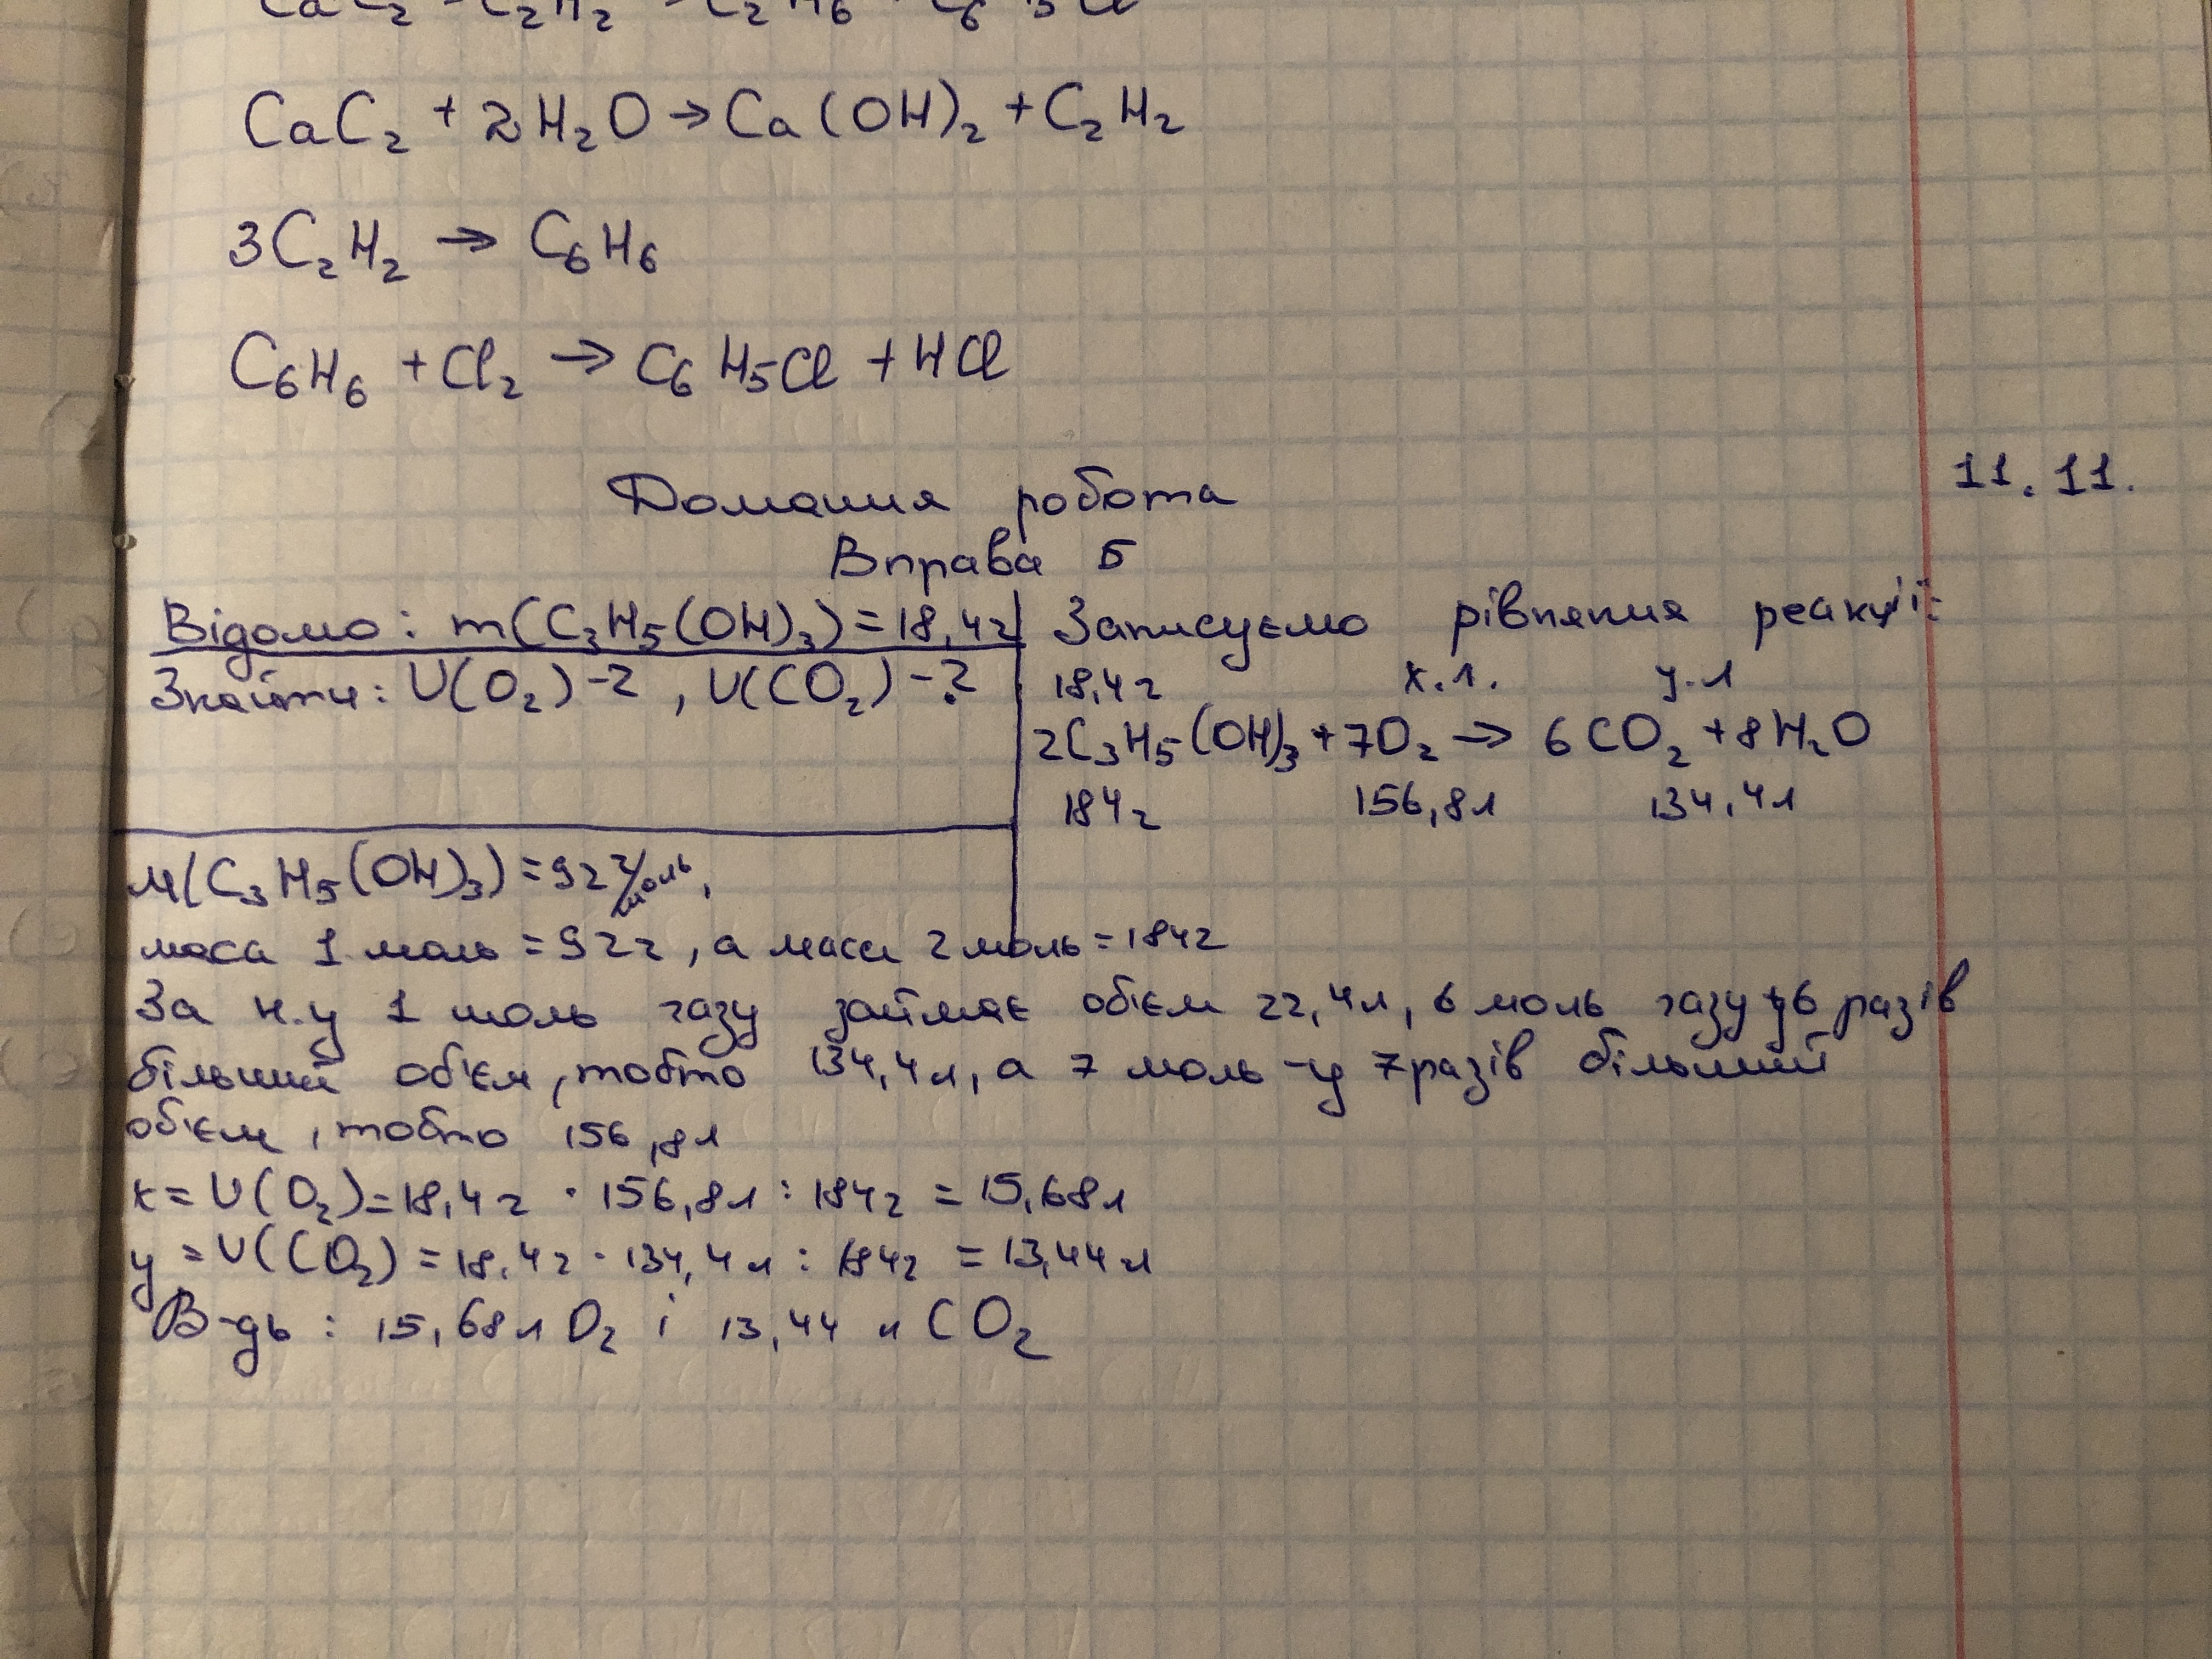 CaC₂ + 2H₂O → Ca(OH)₂ + C₂H₂
3C₂H₂ → C₆H₆
C₆H₆ + Cl₂ → C₆H₅Cl + HCl
11.11.
Домашня робота
Вправа 5
Відомо: m(C₃H₅(OH)₃) = 18,4г
Знайти: V(O₂) - ?, V(CO₂) - ?
Записуємо рівняння реакції:
18,4г x.л. y.л
2C₃H₅(OH)₃ + 7O₂ → 6CO₂ + 8H₂O
184г 156,8л 134,4л
M(C₃H₅(OH)₃) = 92 г/моль,
маса 1 моль = 92г, а маса 2 моль = 184г
За н.у 1 моль газу займає обєм 22,4л, 6 моль газу у 6 разів
більший обєм, тобто 134,4л, а 7 моль - у 7 разів більший
обєм, тобто 156,8л
x = V(O₂) = 18,4г · 156,8л : 184г = 15,68л
y = V(CO₂) = 18,4г · 134,4л : 184г = 13,44л
В-дь: 15,68л O₂ і 13,44 л CO₂